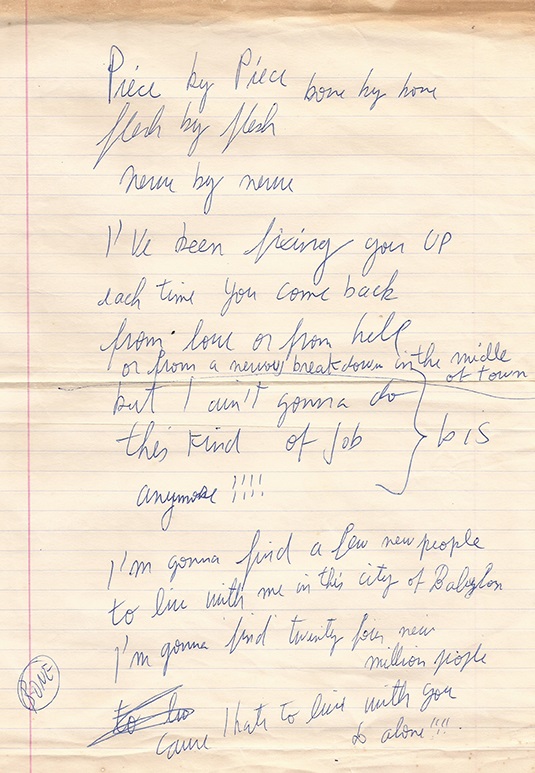 Piece by Piece bone by bone
flesh by flesh
nerve by nerve
I've been fixing you UP
each time you come back
from love or from hell
or from a nervous breakdown in the middle
of town
but I ain't gonna do
this kind of job
bis
anymore !!!!
I'm gonna find a few new people
to live with me in this city of Babylon
I'm gonna find twenty four new
million people
BONE
to liv
cause I hate to live with you
so alone !!!!